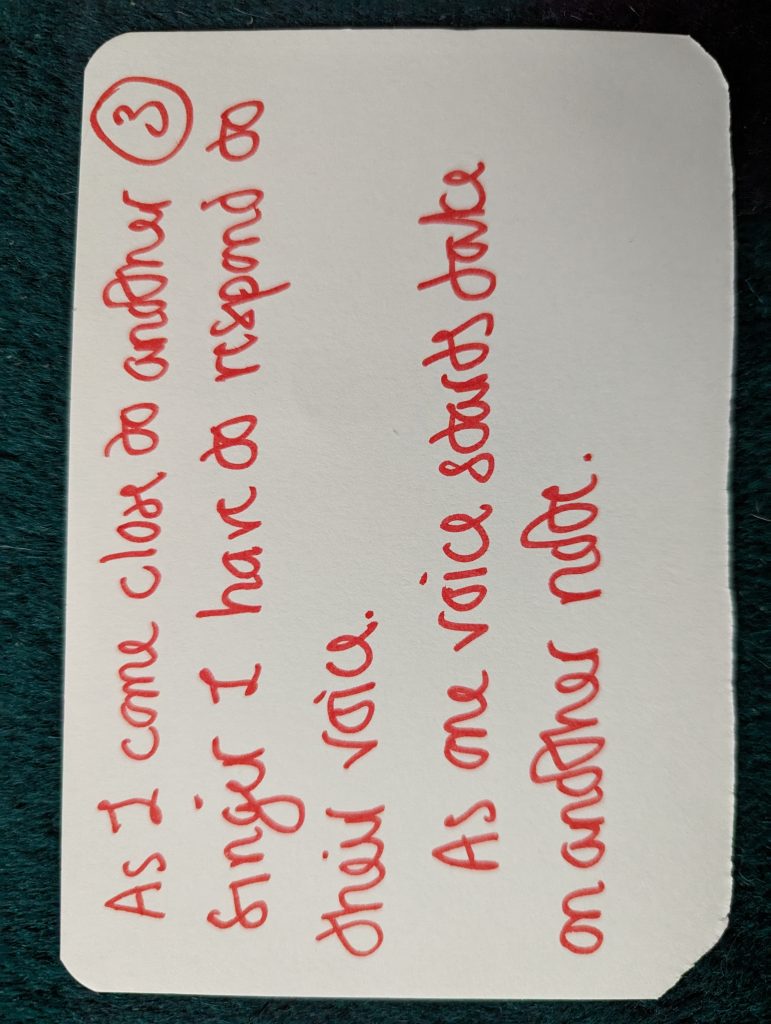 As I come close to another 3
singer I have to respond to
their voice.
As one voice starts take
on another note.